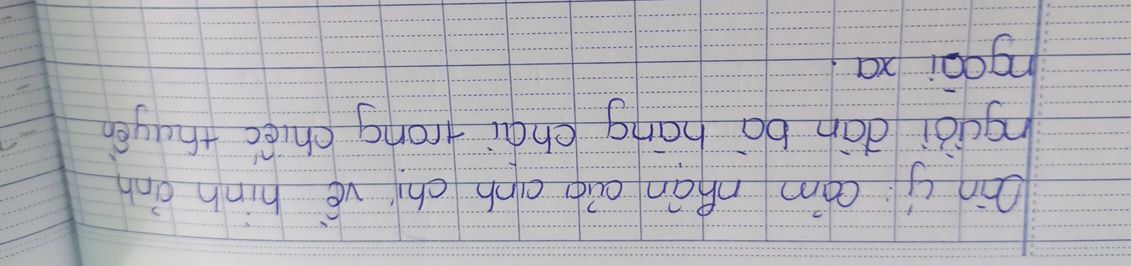 Dàn ý: cảm nhận của anh chị về hình ảnh
người đàn bà hàng chài trong chiếc thuyền
ngoài xa.